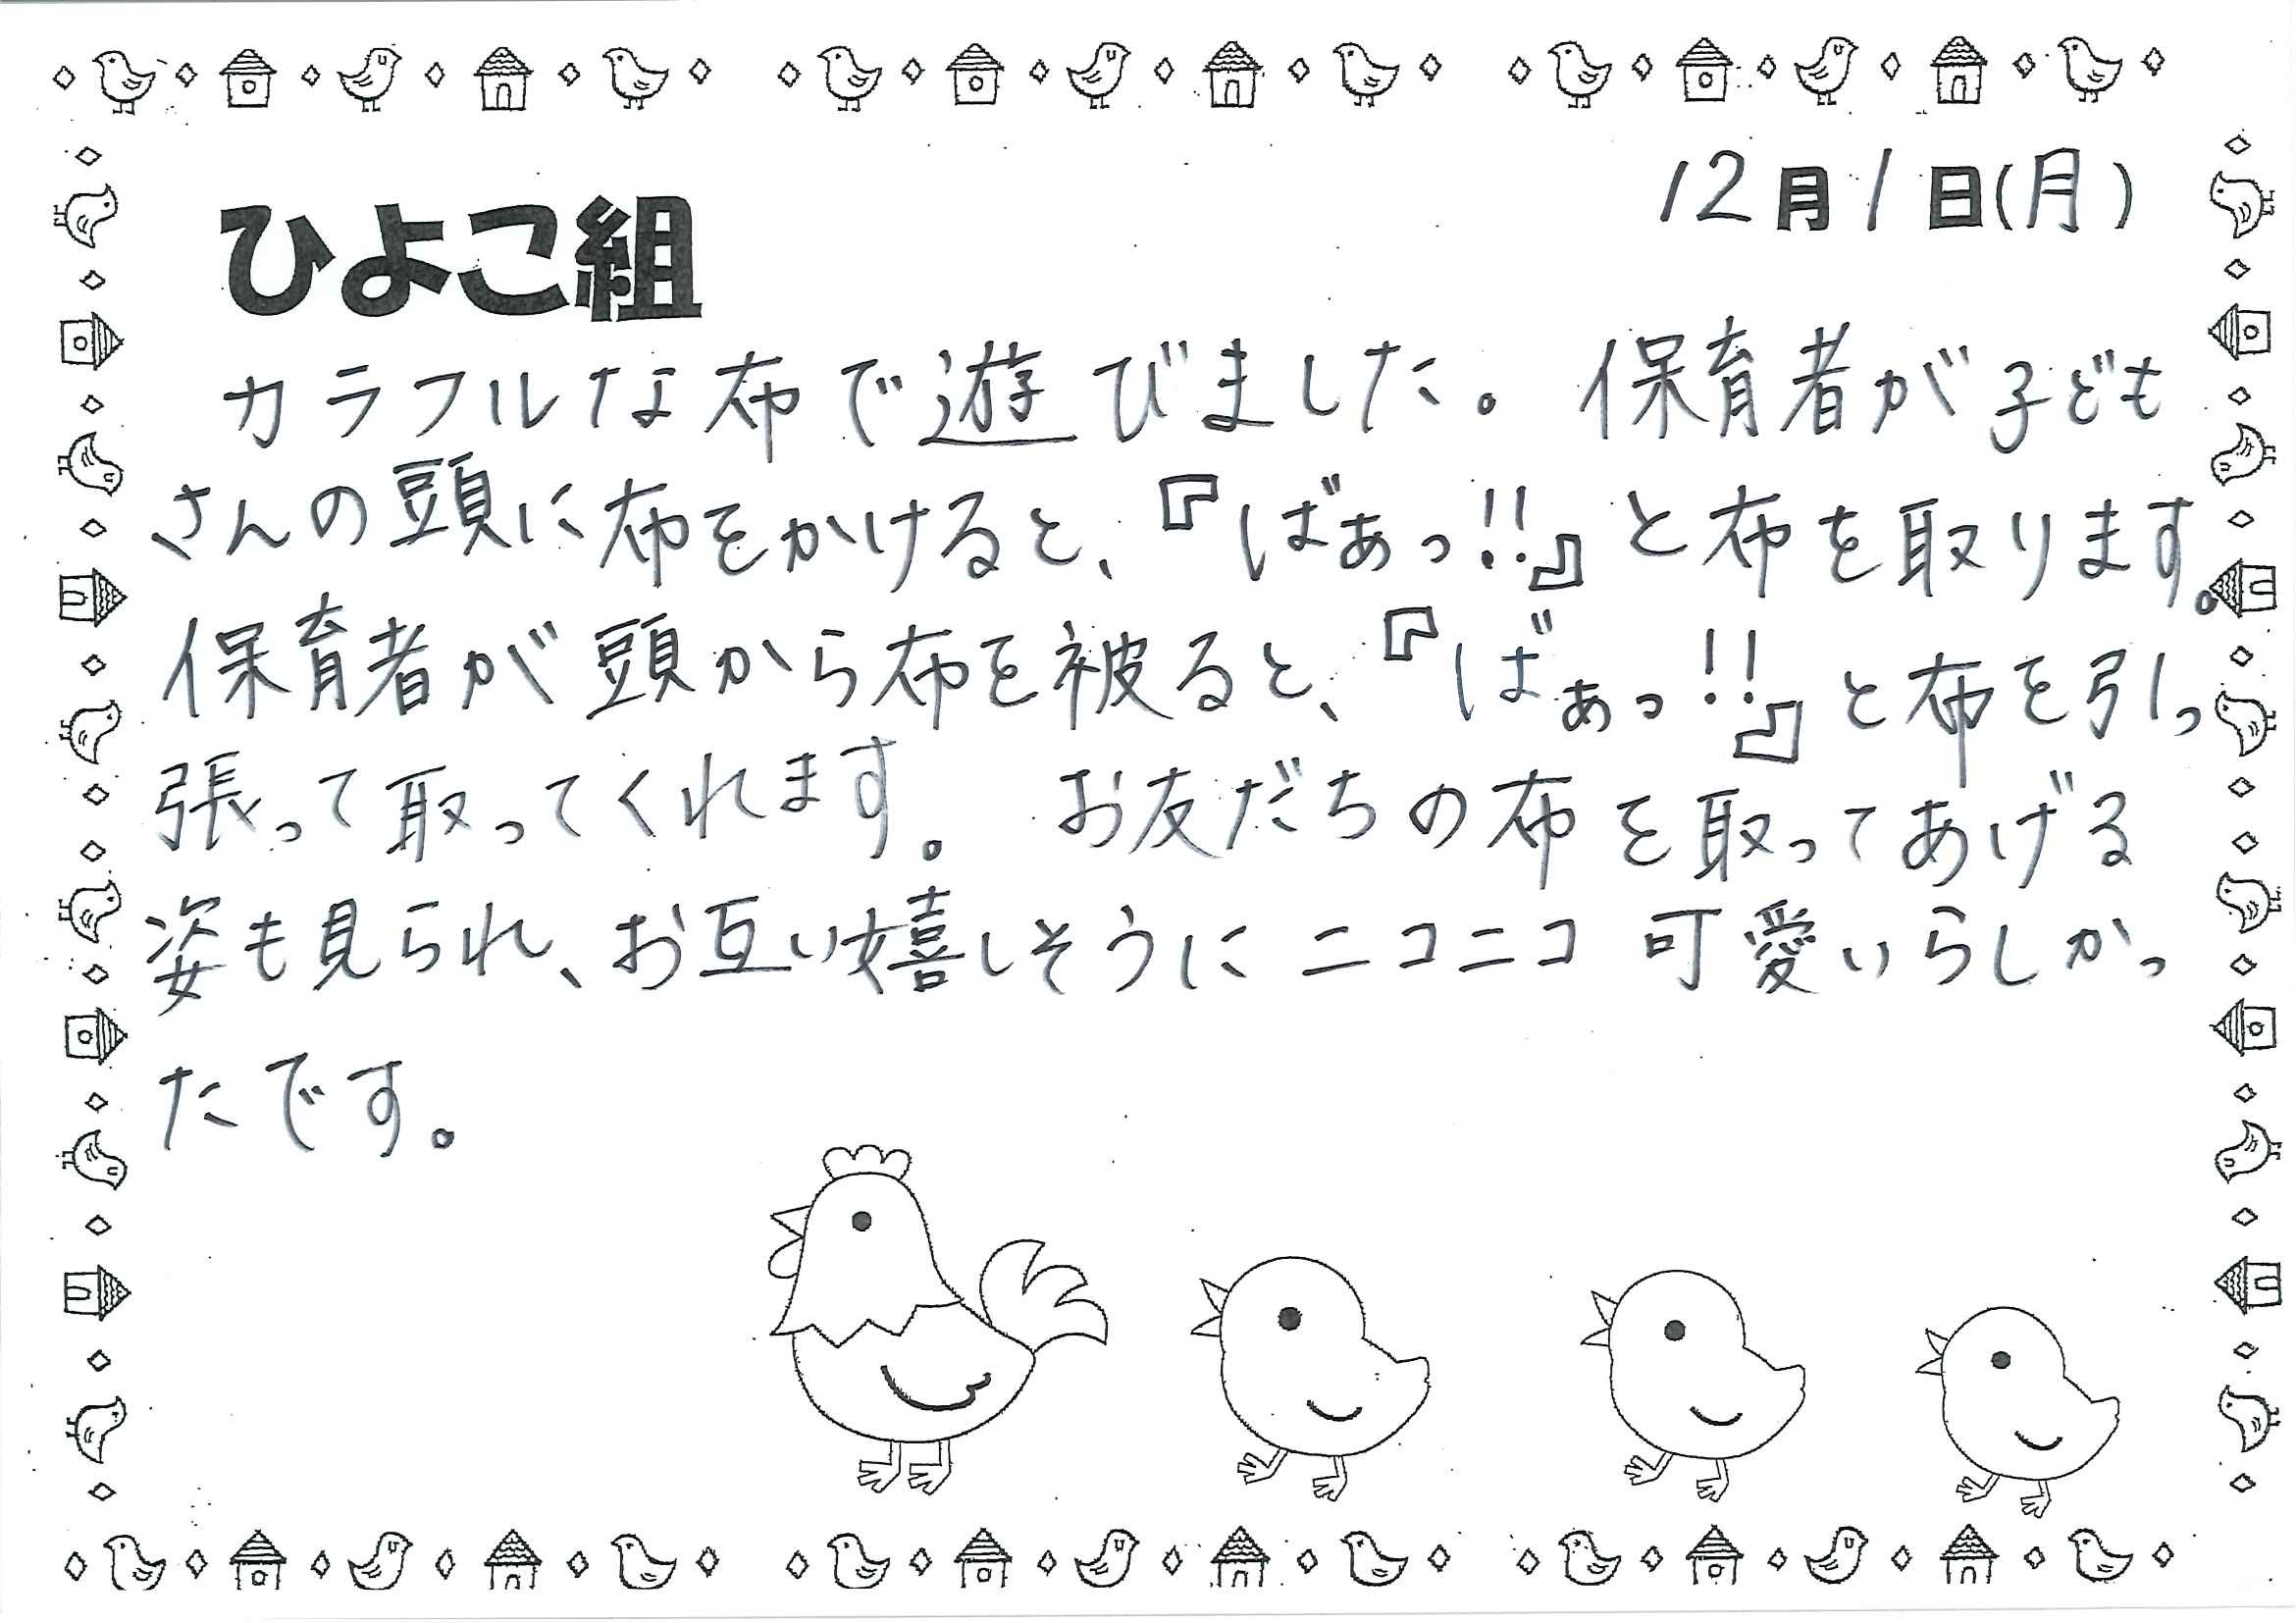 12月1日(月)
ひよこ組
カラフルな布で遊びました。保育者が子ども
さんの頭に布をかけると、『ばぁっ!!』と布を取ります。
保育者が頭から布を被ると、『ばぁっ!!』と布を引っ
張って取ってくれます。お友だちの布を取ってあげる
姿も見られ、お互い嬉しそうにニコニコ可愛いらしかっ
たです。